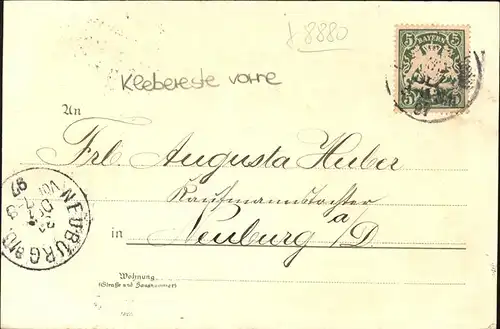 £ 8880
5 BAYERN 5
Klebereste vorne
5 5
An
Frl. Augusta Huber
Kaufmannstochter
a/D.
in Neuburg
NEUBURG a/D.
VOR
97
Wohnung
(Straße und Hausnummer)